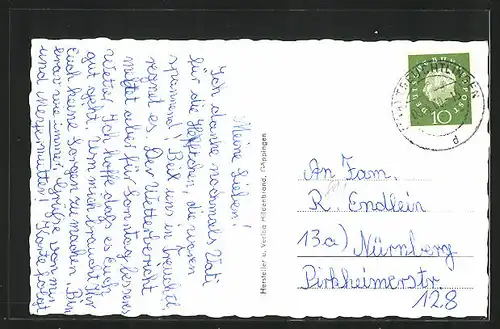 Meine Lieben!
Ich danke nochmals Vati
für die Heftchen, die waren
spannend! Bei uns in Treuchtl.
regnet es. Der Wetterbericht
meldet aber für Sonntag besseres
Wetter. Ich hoffe daß es Euch
gut geht. Um mich braucht Ihr
Euch keine Sorgen zu machen. Bin
brav wie immer! Grüße von mir
und
Hersteller u. Verlag Hildenbrand, Göppingen
DEUTSCHE BUNDESPOST
10
TREUCHTLINGEN
d
An Fam.
R. Endlein
13a) Nürnberg
Pirkheimerstr.
128